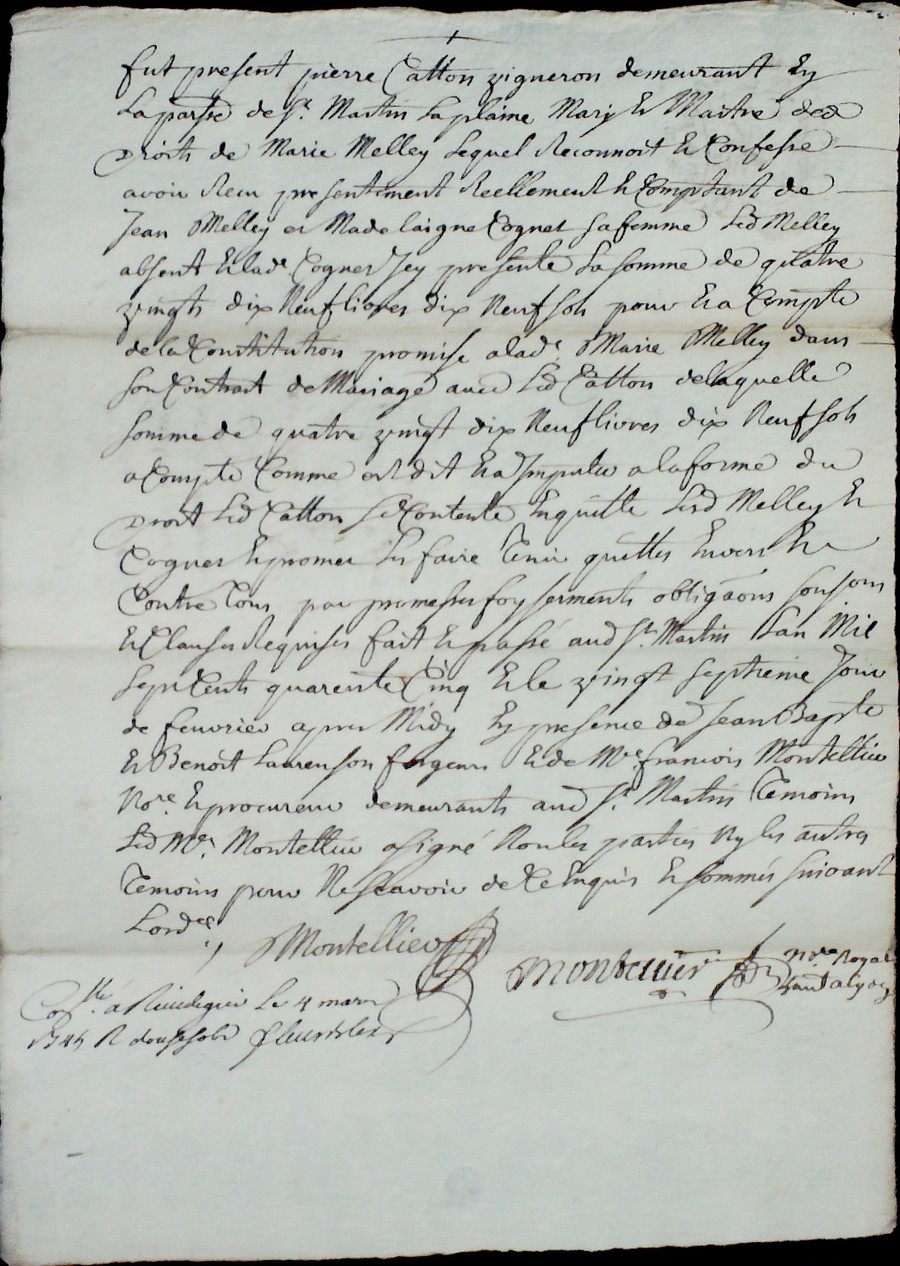 fut present pierre Catton vigneron demeurant En
La parsse de St. Martin La plaine Mary Et Maitre des
Droits de Marie Melley Lequel Reconnoit Et Confesse
avoir Receu presentement Reellement Et Comptant de
Jean Melley et Madelaigne Cognet sa femme Led Melley
absent Et lade Cognet Icy presente La somme de quatre
vingts dix Neuf livres dix Neuf sols pour Et a Compte
de la Constitution promise a lade Marie Melley dans
Son Contrat de Mariage avec Led Catton de laquelle
somme de quatre vingt dix Neuf livres dix Neuf sols
a Compte Comme est dit Et a Imputer a la forme du
Droit Led Catton se Contente En quitte Lesd Melley Et
Cognet Et promet Les faire Tenir quittes Envers Et
Contre Tous par promesses foy serments obligaons
Et Clauses Requises fait Et passé aud St. Martin Lan Mil
Sept Cents quarente Cinq Et le vingt septieme Jour
de feuvrier apres Midy En presence de Jean Bapte
Et Benoit Laurenson forgeurs Et de Me. francois Montellier
Nore. Et procureur demeurants aud St. Martin Temoins
Led Me. Montellier a signé Non les parties Ny les autres
Temoins pour Ne scavoir de Ce Enquis Et sommés suivant
Lordce
Montellier
Montellier Nore Royal
Collé. a Rivedegier Le 4 mars
1745 R douse sols fleurdelix